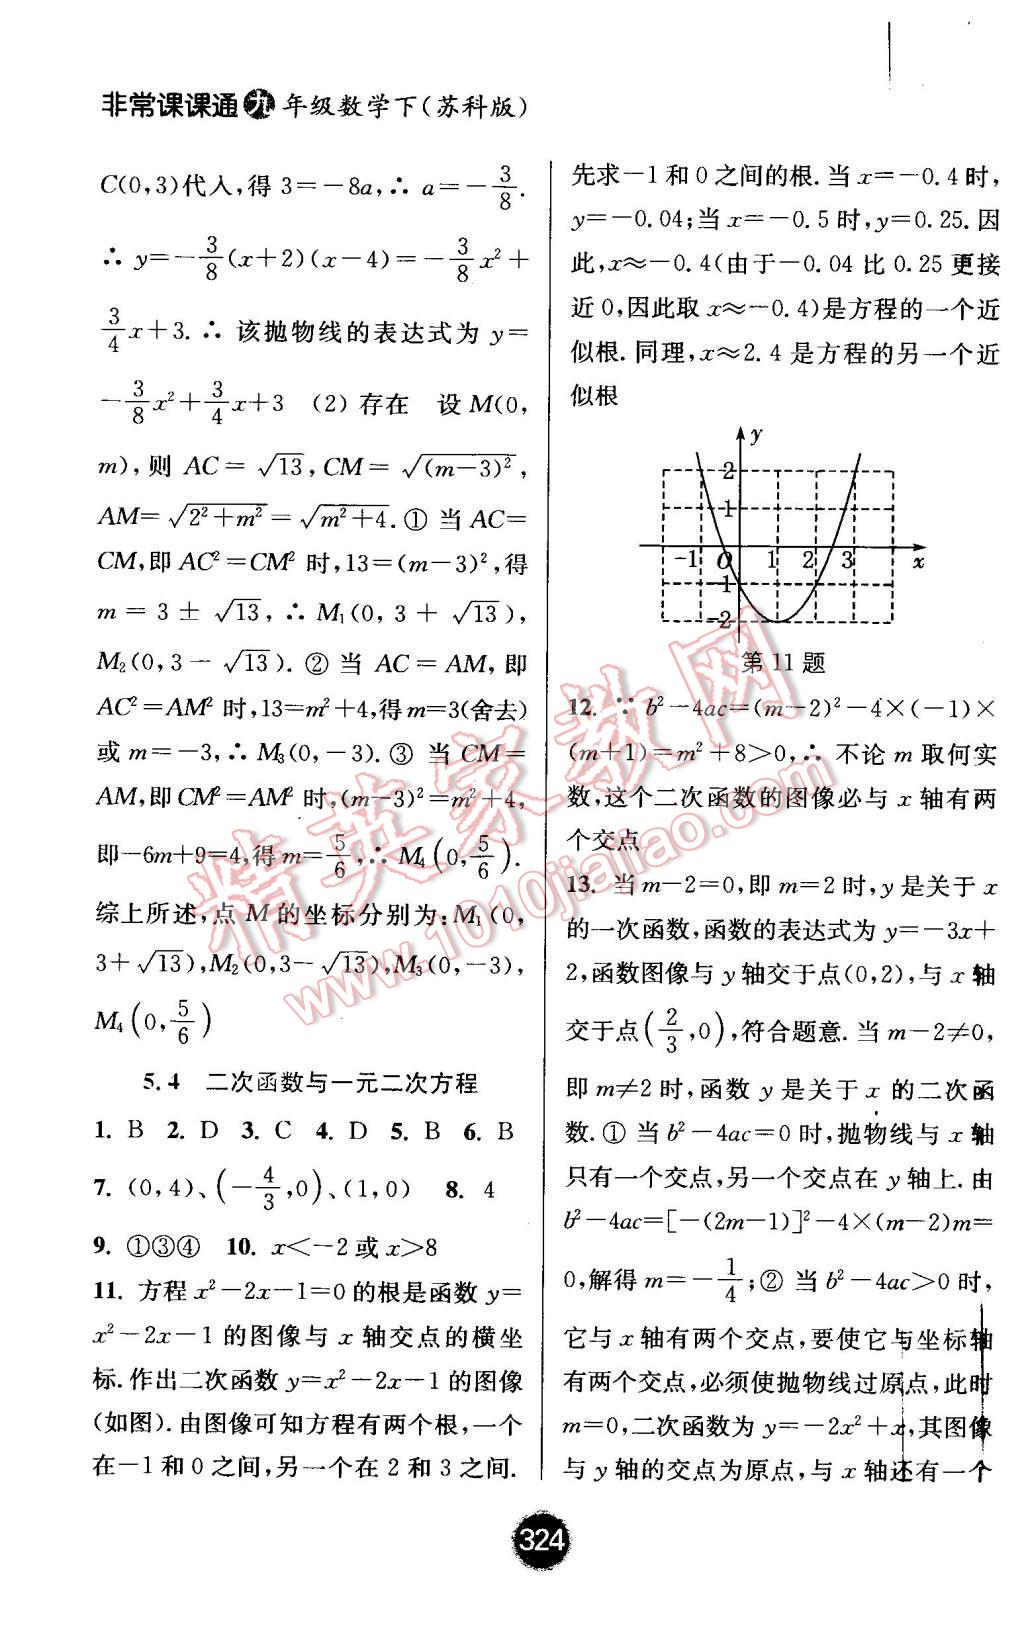 非常课课通 九 年级数学下(苏科版)
C(0,3)代入,得 3=-8a,∴ a=-3/8.
∴ y=-3/8(x+2)(x-4)=-3/8x²+
3/4x+3.∴ 该抛物线的表达式为 y=
-3/8x²+3/4x+3 (2) 存在 设 M(0,
m),则 AC=√13,CM=√(m-3)²,
AM=√2²+m²=√m²+4.① 当 AC=
CM,即 AC²=CM² 时,13=(m-3)²,得
m=3±√13,∴ M₁(0,3+√13),
M₂(0,3-√13).② 当 AC=AM,即
AC²=AM² 时,13=m²+4,得m=3(舍去)
或 m=-3,∴ M₃(0,-3).③ 当 CM=
AM,即 CM²=AM² 时,(m-3)²=m²+4,
即-6m+9=4,得 m=5/6,∴ M₄(0,5/6).
综上所述,点 M 的坐标分别为:M₁(0,
3+√13),M₂(0,3-√13),M₃(0,-3),
M₄(0,5/6)
5.4 二次函数与一元二次方程
1. B 2. D 3. C 4. D 5. B 6. B
7. (0,4)、(-4/3,0)、(1,0) 8. 4
9. ①③④ 10. x<-2或x>8
11. 方程 x²-2x-1=0 的根是函数 y=
x²-2x-1 的图像与 x 轴交点的横坐
标.作出二次函数 y=x²-2x-1 的图像
(如图).由图像可知方程有两个根,一个
在-1 和 0 之间,另一个在 2 和 3 之间.
先求-1 和 0 之间的根.当 x=-0.4 时,
y=-0.04;当 x=-0.5 时,y=0.25.因
此,x≈-0.4(由于-0.04 比 0.25 更接
近 0,因此取 x≈-0.4)是方程的一个近
似根.同理,x≈2.4 是方程的另一个近
似根
y
2
1
-1 O 1 2 3 x
-1
-2
第 11 题
12. ∵ b²-4ac=(m-2)²-4×(-1)×
(m+1)=m²+8>0,∴ 不论 m 取何实
数,这个二次函数的图像必与 x 轴有两
个交点
13. 当 m-2=0,即 m=2 时,y 是关于 x
的一次函数,函数的表达式为 y=-3x+
2,函数图像与 y 轴交于点(0,2),与 x 轴
交于点(2/3,0),符合题意.当 m-2≠0,
即 m≠2 时,函数 y 是关于 x 的二次函
数.① 当 b²-4ac=0 时,抛物线与 x 轴
只有一个交点,另一个交点在 y 轴上.由
b²-4ac=[-(2m-1)]²-4×(m-2)m=
0,解得 m=-1/4;② 当 b²-4ac>0 时,
它与 x 轴有两个交点,要使它与坐标轴
有两个交点,必须使抛物线过原点,此时
m=0,二次函数为 y=-2x²+x,其图像
与 y 轴的交点为原点,与 x 轴还有一个
324
精英家教网
www.1010jiajiao.com